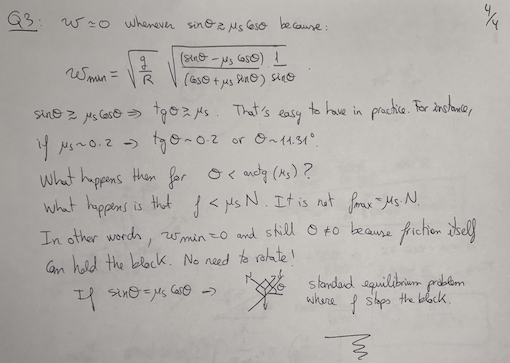 Q3: ω≃0 whenever sinθ ≳ μs cosθ because:
4/4
ωmin = √(g/R) √((sinθ - μs cosθ)/(cosθ + μs sinθ) · 1/sinθ).
sinθ ≳ μs cosθ ⇒ tgθ ≳ μs. That's easy to have in practice. For instance,
if μs ~ 0.2 → tgθ ~ 0.2 or θ ~ 11.31°.
What happens then for θ < arctg(μs)?
What happens is that f < μs N. It is not fmax = μs·N.
In other words, ωmin = 0 and still θ ≠ 0 because friction itself
can hold the block. No need to rotate!
If sinθ = μs cosθ → N f θ standard equilibrium problem
where f stops the block.